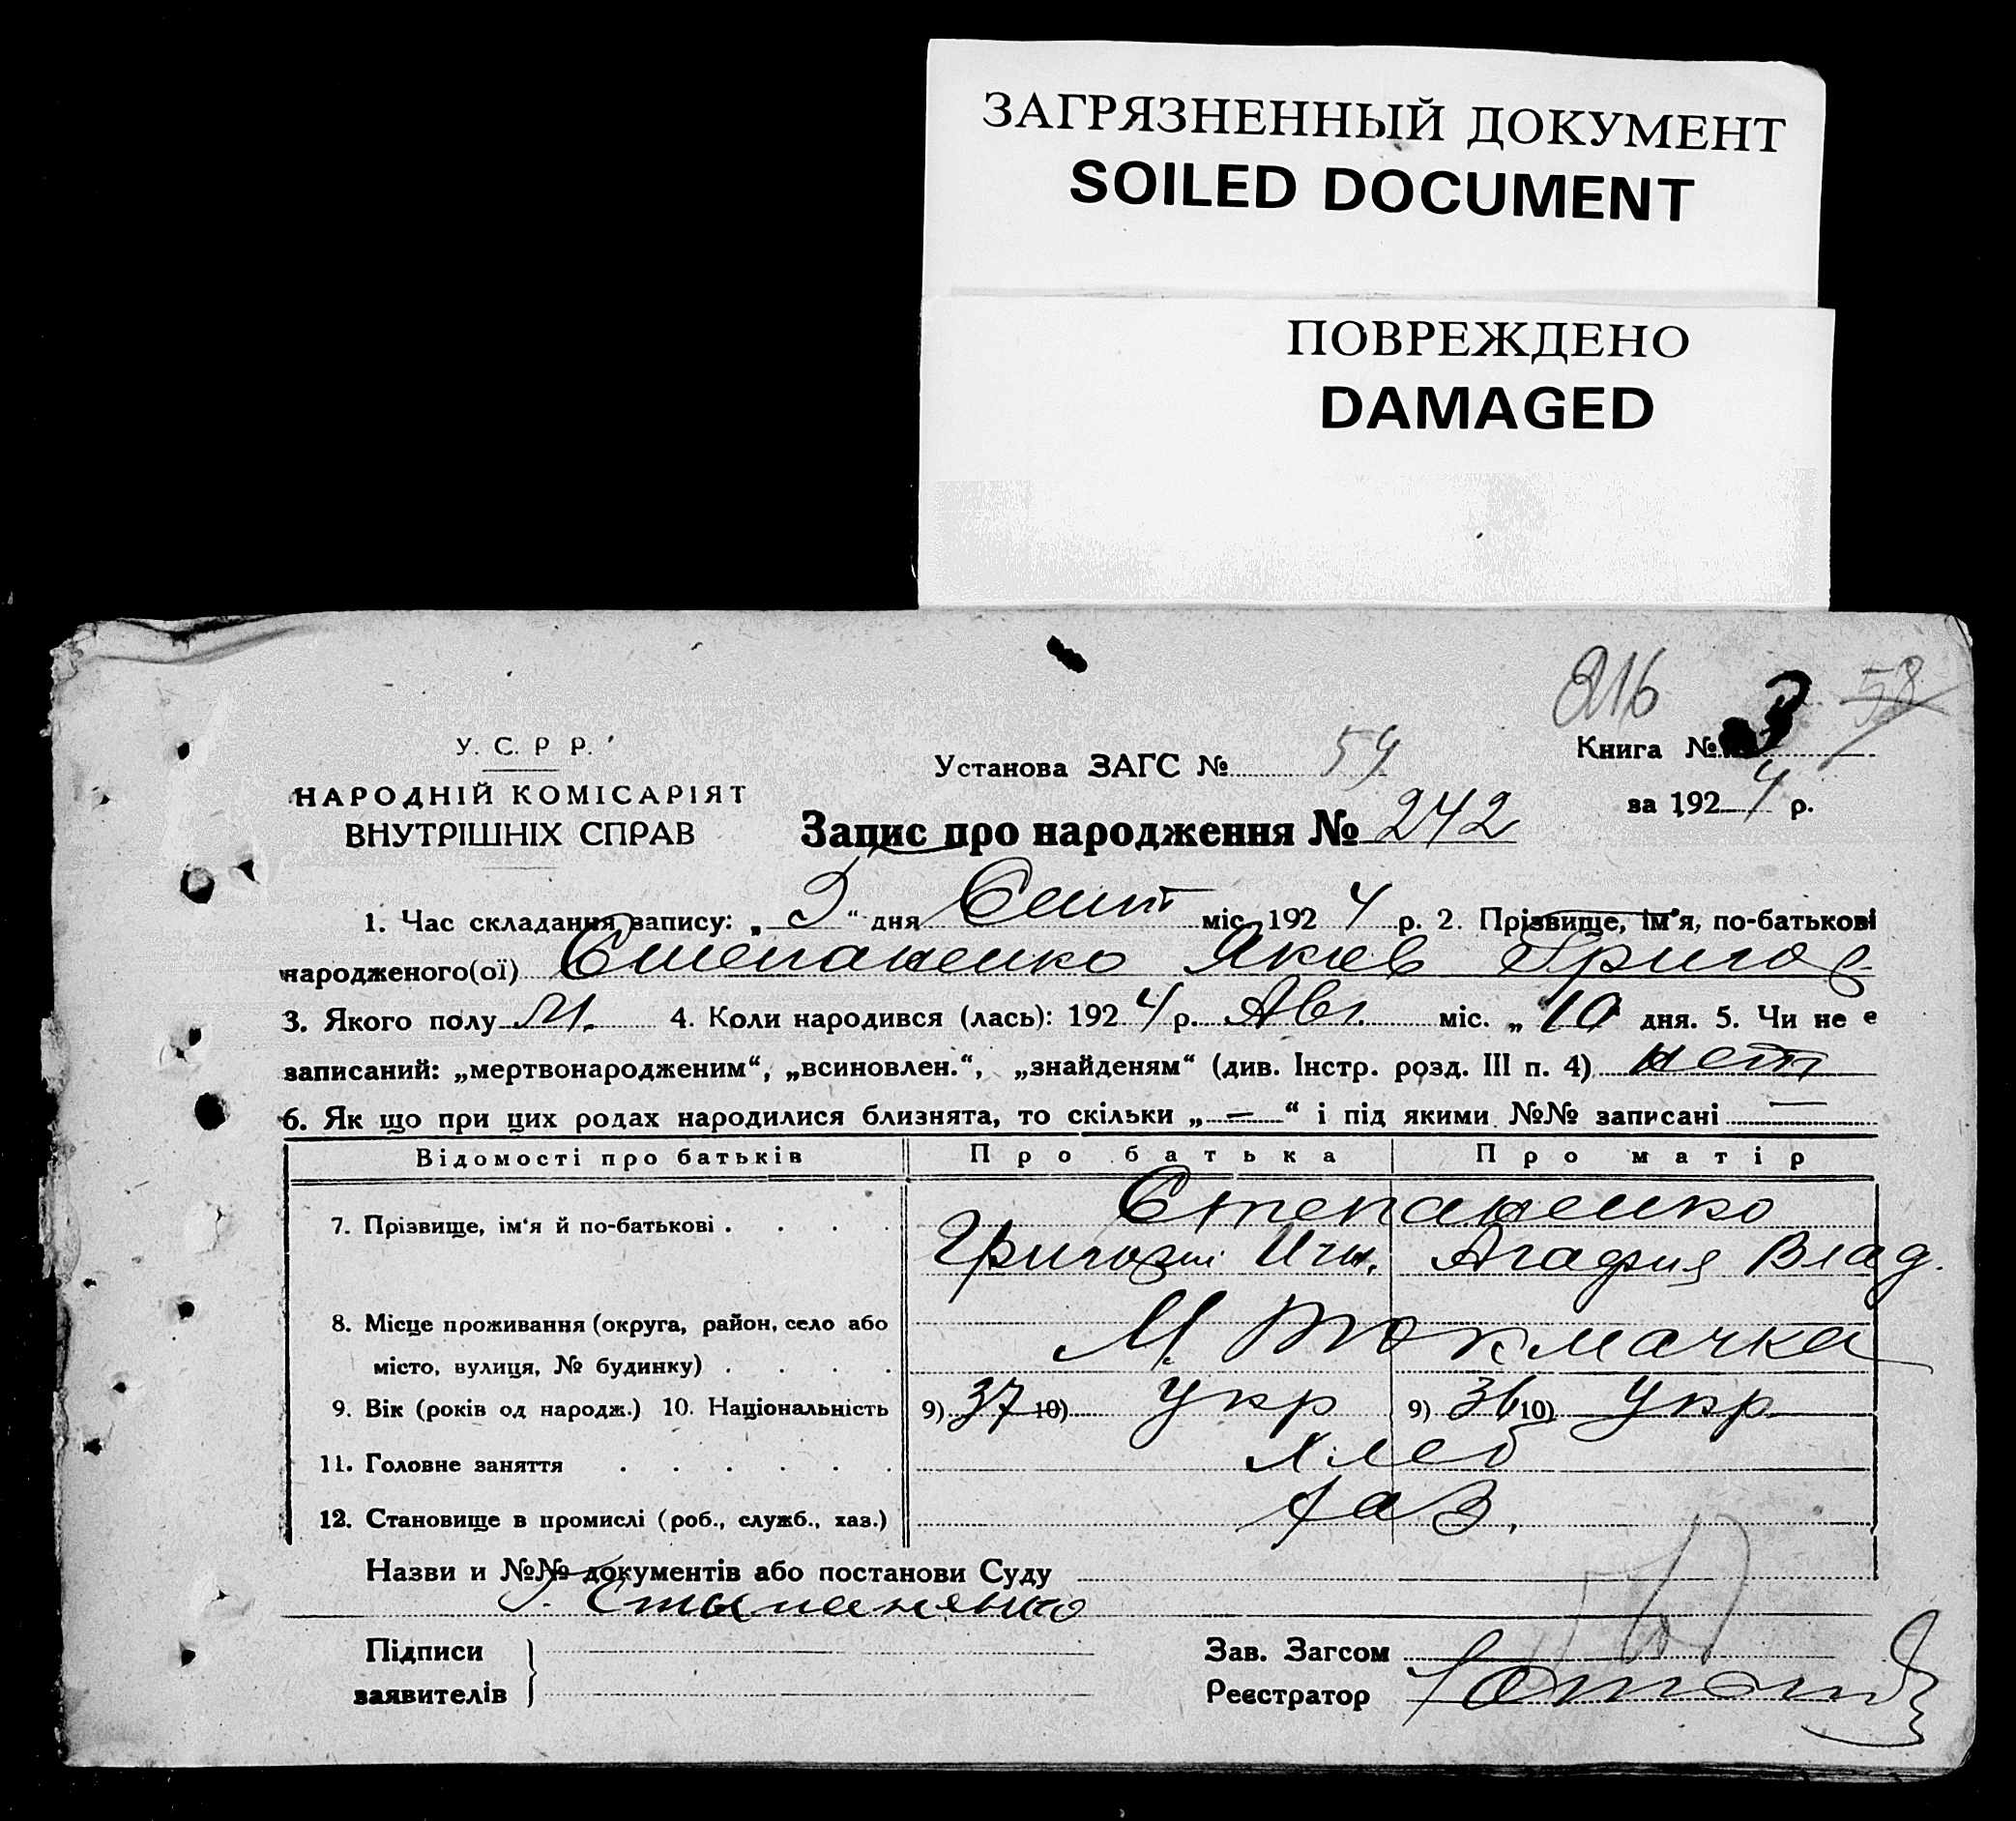 ЗАГРЯЗНЕННЫЙ ДОКУМЕНТ
SOILED DOCUMENT
ПОВРЕЖДЕНО
DAMAGED
216 58
У. С. Р. Р.
НАРОДНІЙ КОМІСАРІЯТ
ВНУТРІШНІХ СПРАВ
Установа ЗАГС № 59
Книга № 3
за 1924 р.
Запис про народження № 242
1. Час складання запису: „ 5 “ дня Сент міс. 1924 р. 2. Прізвище, ім'я, по-батькові
народженого(ої) Степаненко Яков Григор
3. Якого полу М. 4. Коли народився (лась): 1924 р. Авг. міс. „ 10 дня. 5. Чи не е
записаний: „мертвонародженим“, „всиновлен.“, „знайденям“ (див. Інстр. розд. III п. 4) нет
6. Як що при цих родах народилися близнята, то скільки „ — “ і під якими №№ записані —
Відомості про батьків Про батька Про матір
7. Прізвище, ім'я й по-батькові . . . . Степаненко
Григорий Игн. Агафия Влад.
8. Місце проживання (округа, район, село або
місто, вулиця, № будинку) . . . . М Токмачка
9. Вік (років од народж.) 10. Національність 9) 37 10) Укр 9) 36 10) Укр
11. Головне заняття . . . . . . Хлеб
12. Становище в промислі (роб., служб., хаз.) хаз.
Назви и №№ документів або постанови Суду
Г. Стыпаненко
Підписи
заявителів
Зав. Загсом
Реєстратор